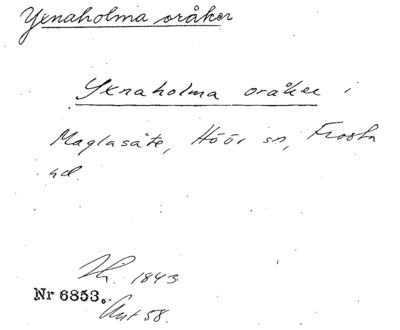 Yxnaholma oråker
Yxnaholma oråker i
Maglasäte, Höörs sn, Frosta
hd.
1843
Nr 6853.
Ant 58.